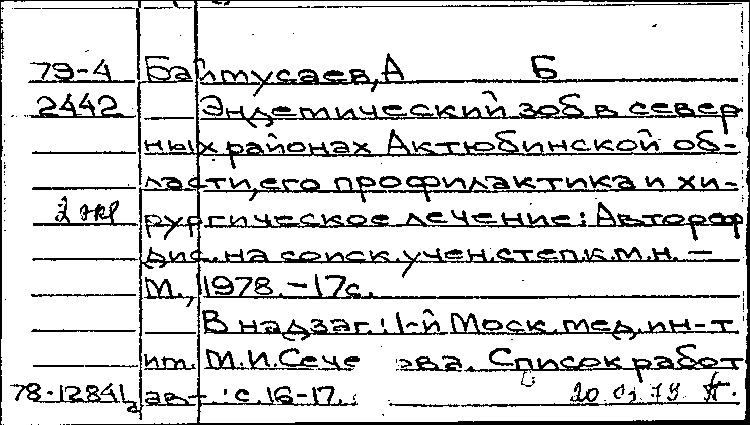 79-4 Баймусаев, А Б
2442 Эндемический зоб в север
ных районах Актюбинской об-
ласти, его профилактика и хи-
2 экз рургическое лечение: Автореф
дис. на соиск. учен. степ. к.м.н. –
М., 1978. – 17с.
В надзаг.: 1-й Моск. мед. ин-т
им. М.И. Сече ова. Список работ
78-12841 ав- : с. 16-17. 79